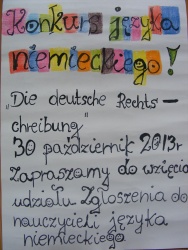 Konkurs języka
niemieckiego!
„Die deutsche Rechts-
chreibung"
30 październik 2013r
Zapraszamy do wzięcia
udziału. Zgłoszenia do
nauczycieli języka
niemieckiego